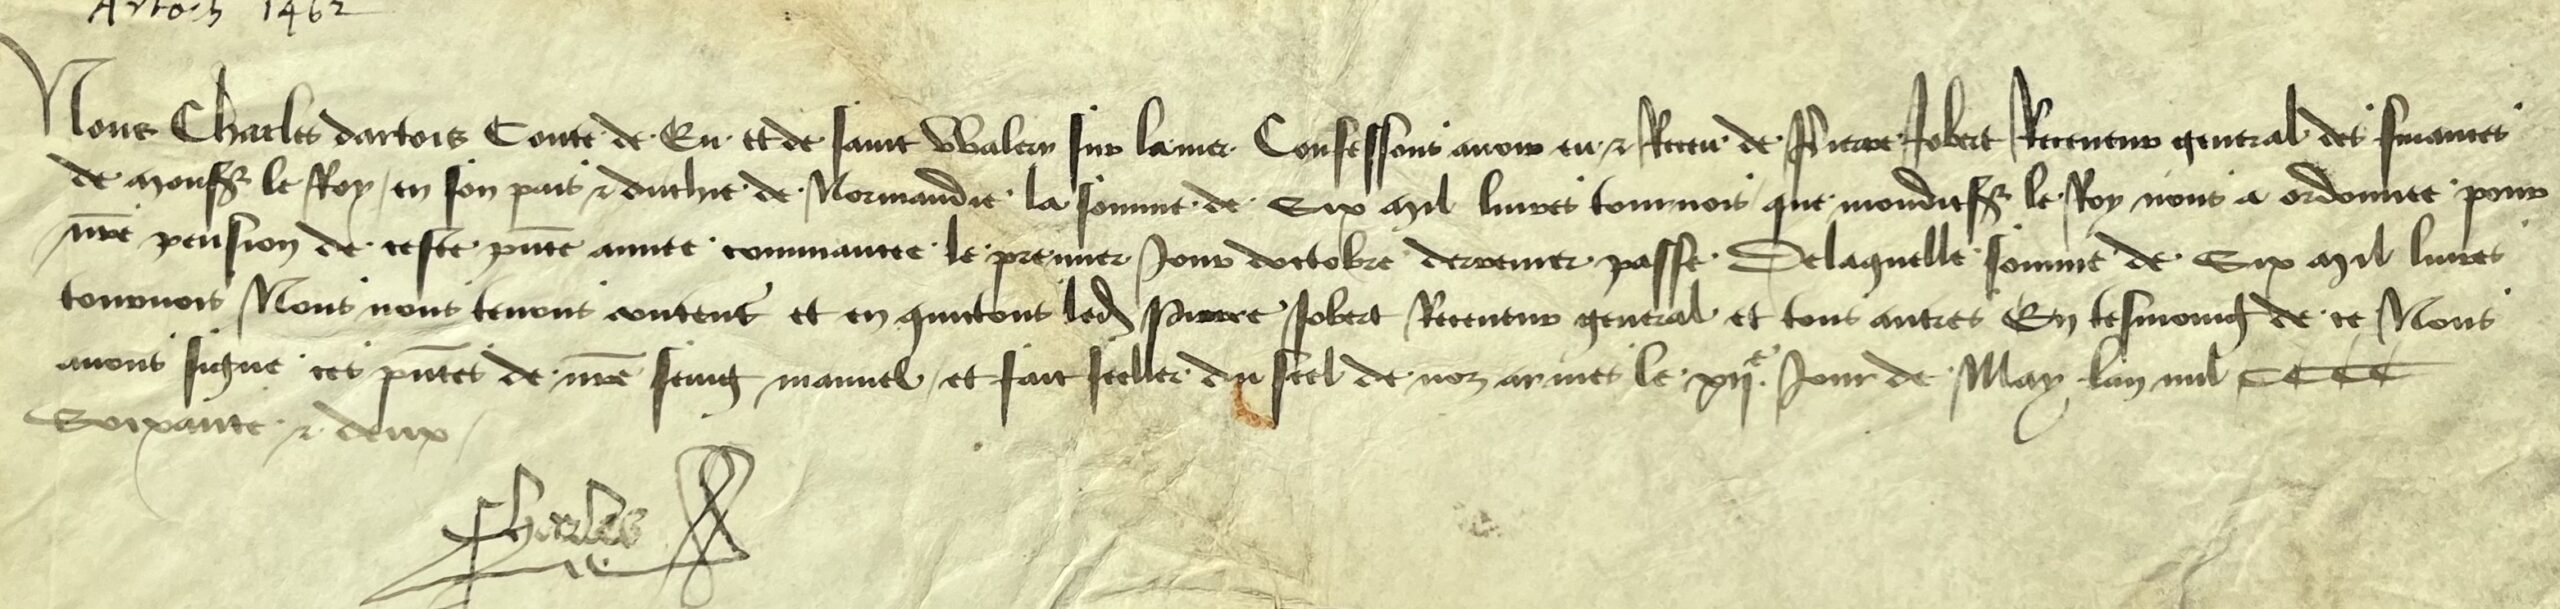 Artois 1462
Nous Charles dartois Conte de Eu et de saint Walery sur lamer Confessons avoir eu & Receu de Pierre Jobert Receveur general des finances
de Monsr le Roy en son pais & duchie de Normandie la somme de Six Mil livres tournois que mondit sr le Roy nous a ordonnee pour
nre pension de ceste pnte annee commancee le premier Jour doctobre derrenier passe Delaquelle somme de Six Mil livres
tournois Nous nous tenons content et en quictons led Pierre Jobert Receveur general et tous autres En tesmoing de ce Nous
avons signe ces pntes de nre seing manuel et fait seeller du seel de noz armes le xije Jour de May lan mil CCCC
Soixante & deux
Charles